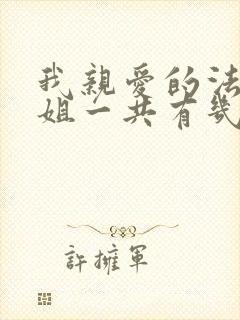 我親愛的法
姐一共有幾
許擁軍